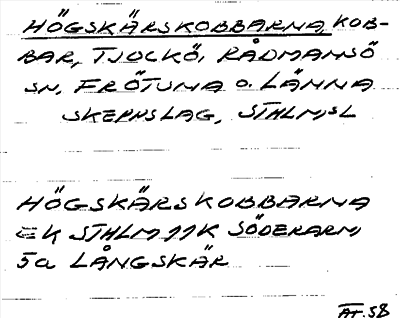 HÖGSKÄRSKOBBARNA, KOB-
BAR, TJOCKÖ, RÅDMANSÖ
SN, FRÖTUNA O. LÄNNA
SKEPPSLAG, STHLMSL
HÖGSKÄRSKOBBARNA
EK STHLM 11K SÖDERARM
5a LÅNGSKÄR
AT. 58